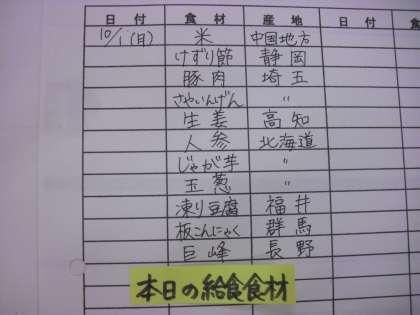 日付 食材 産地 日付 食
10/1(月) 米 中国地方
けずり節 静岡
豚肉 埼玉
さやいんげん 〃
生姜 高知
人参 北海道
じゃが芋 〃
玉葱 〃
凍り豆腐 福井
板こんにゃく 群馬
巨峰 長野
本日の給食食材